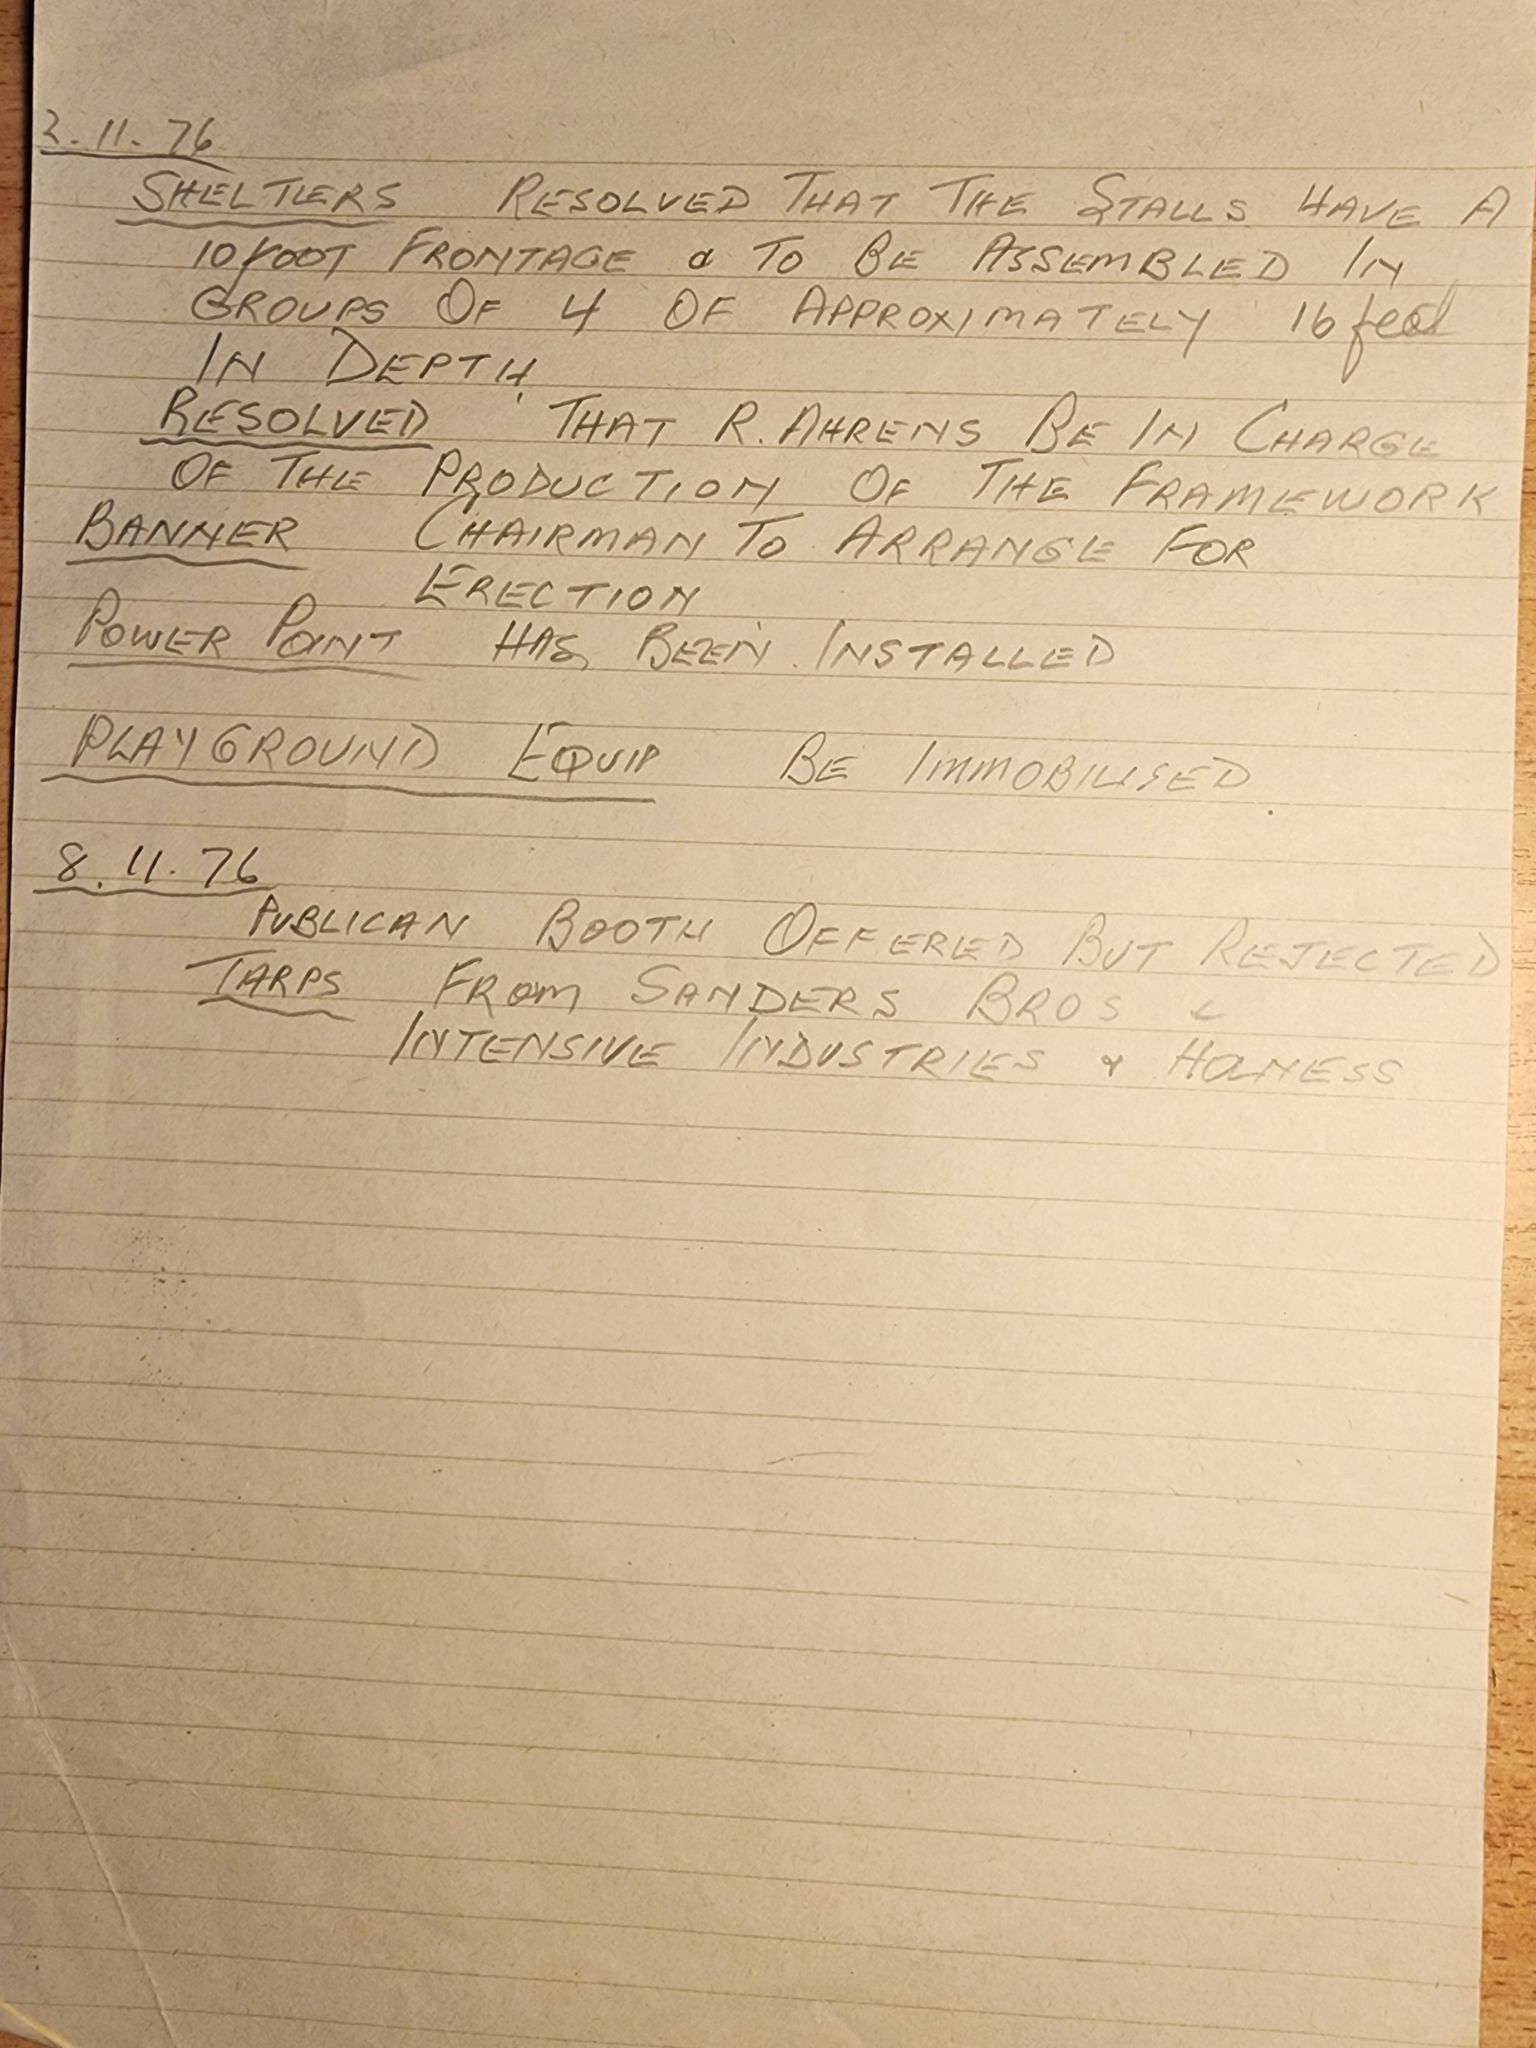 2.11.76
SHELTERS RESOLVED THAT THE STALLS HAVE A
10 foot FRONTAGE & TO BE ASSEMBLED IN
GROUPS OF 4 OF APPROXIMATELY 16 feet
IN DEPTH.
RESOLVED THAT R. AHRENS BE IN CHARGE
OF THE PRODUCTION OF THE FRAMEWORK
BANNER CHAIRMAN TO ARRANGE FOR
ERECTION
POWER POINT HAS BEEN INSTALLED
PLAYGROUND EQUIP BE IMMOBILISED.
8.11.76
PUBLICAN BOOTH OFFERED BUT REJECTED
TARPS FROM SANDERS BROS &
INTENSIVE INDUSTRIES &